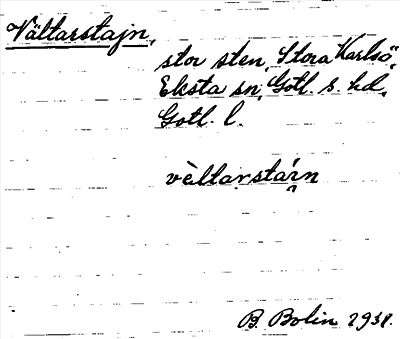 Vältarstajn,
stor sten, Stora Karlsö,
Eksta sn, Gotl. s. hd,
Gotl. l.
vèltarstáın
B. Bolin 1931.